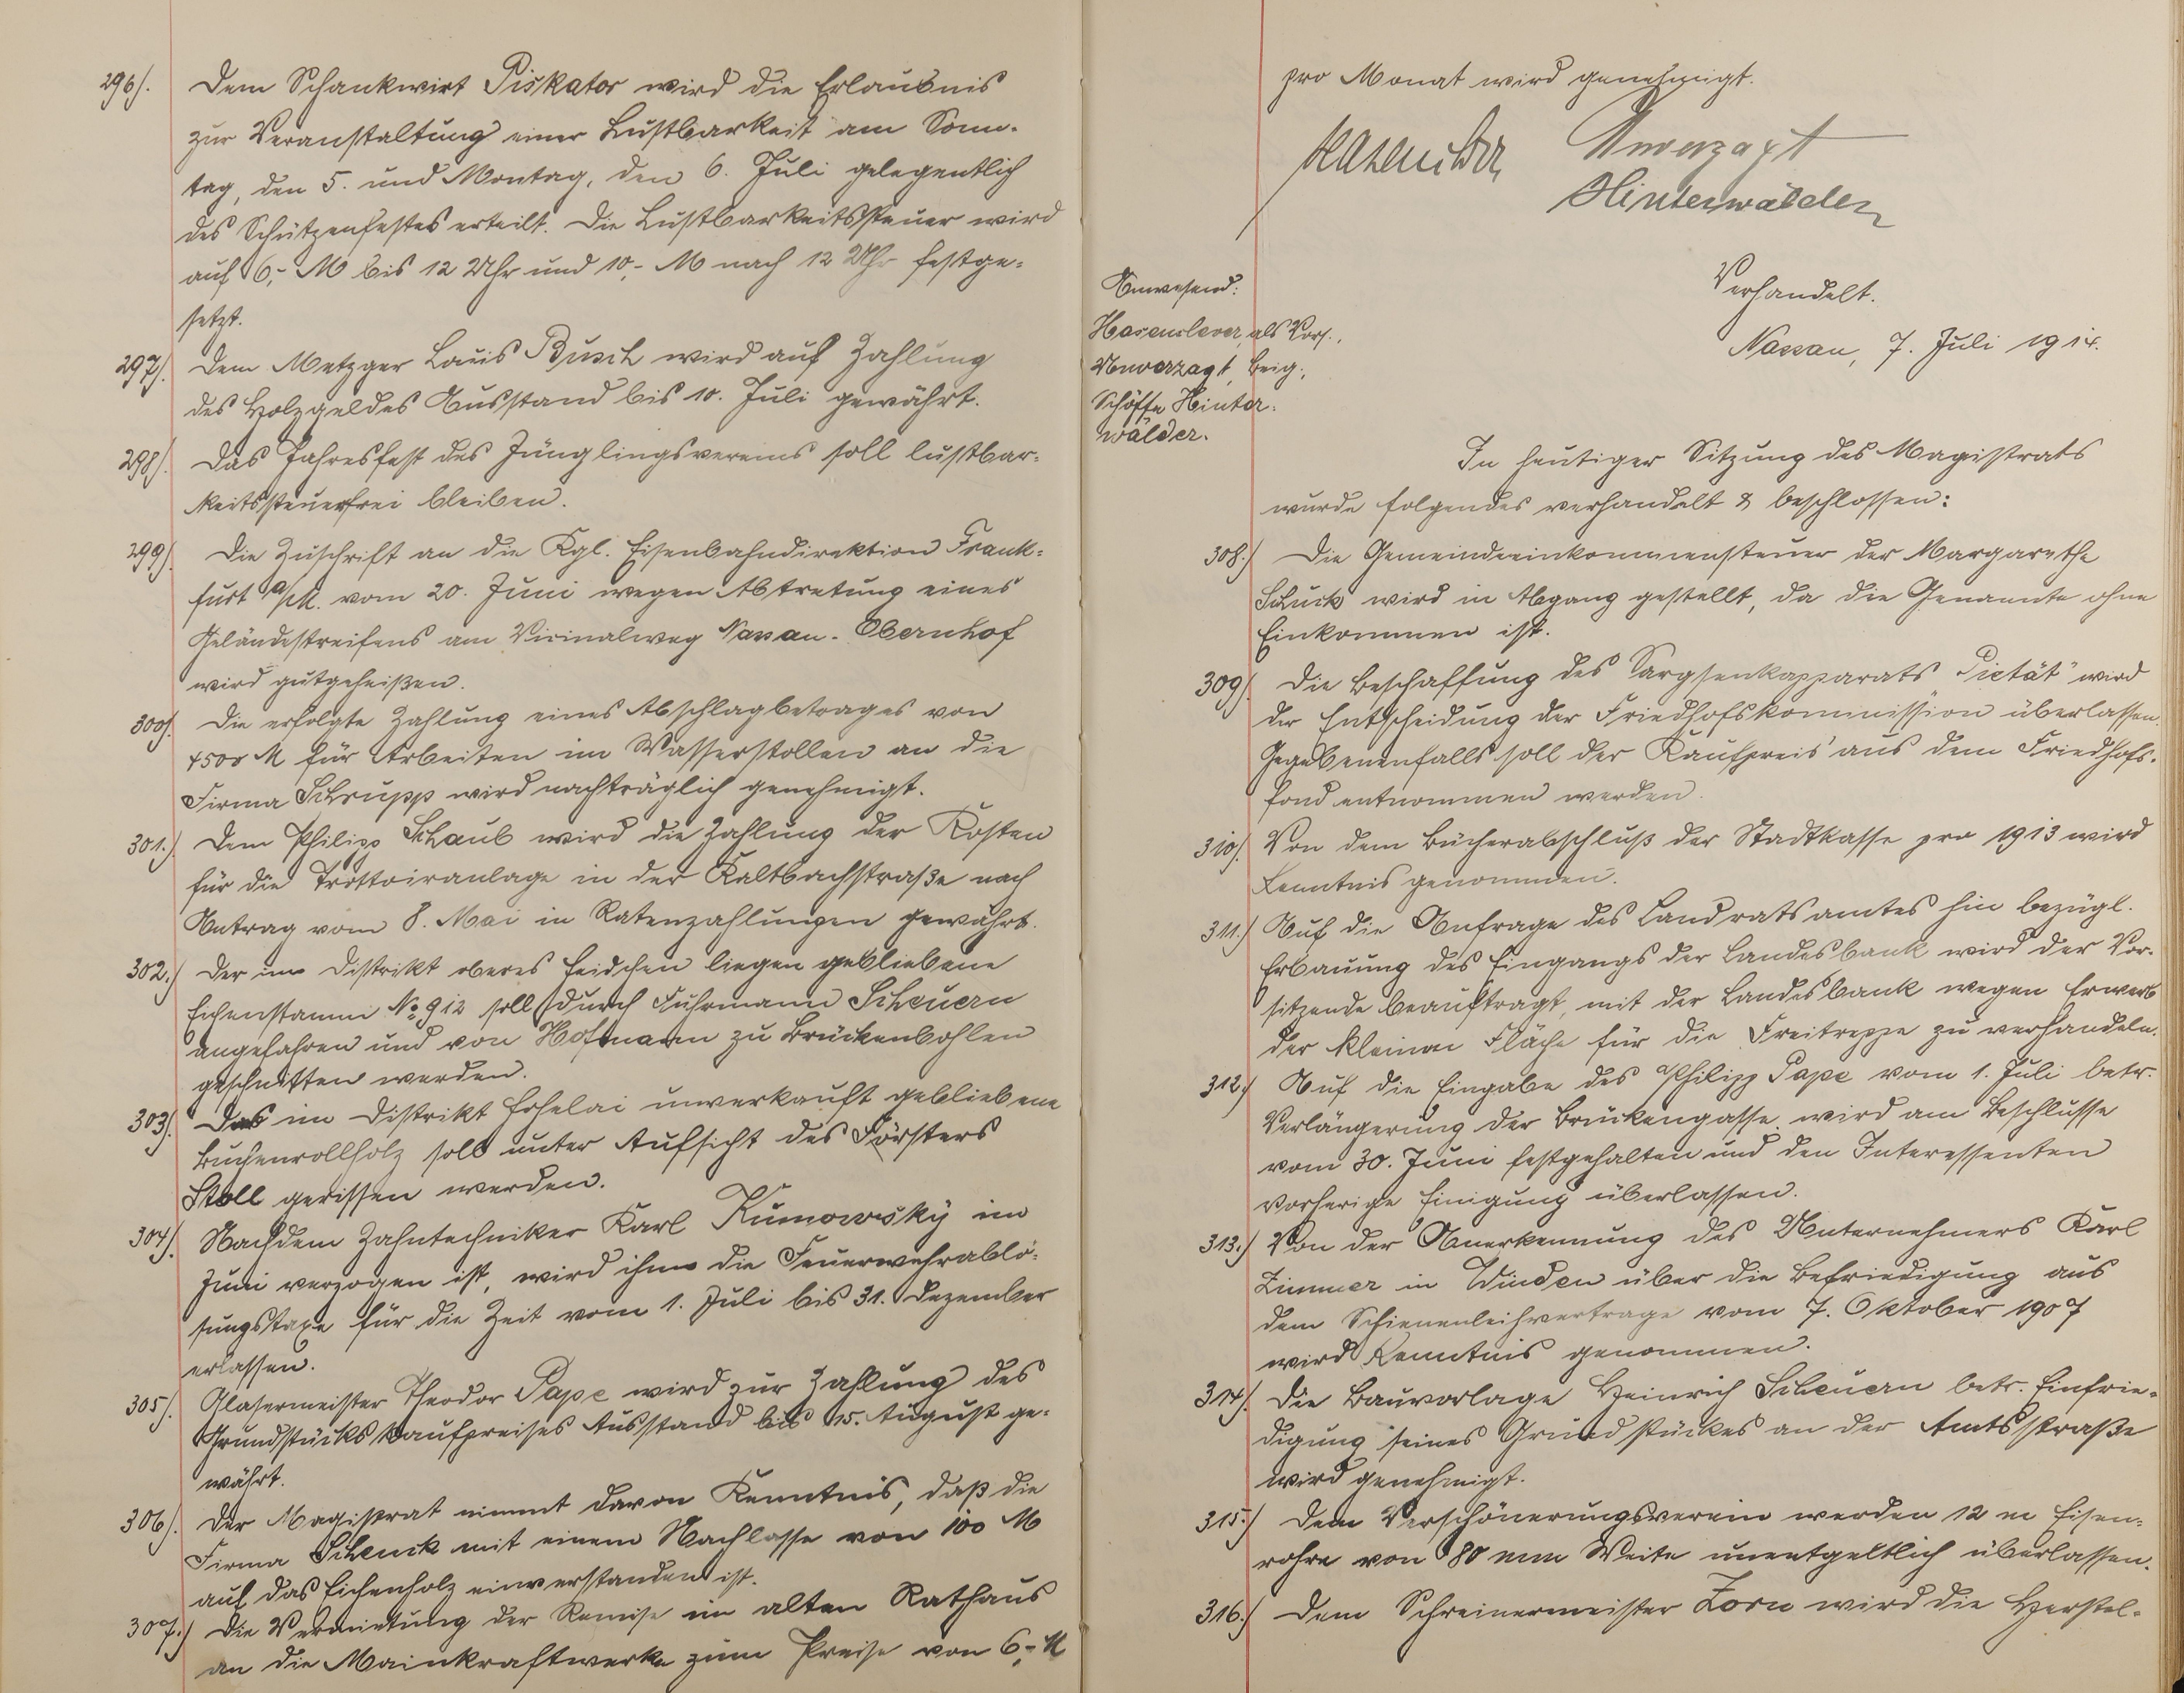 296). Dem Schankwirt Piskator wird die Erlaubnis
zur Veranstaltung einer Lustbarkeit am Sonn-
tag, den 5. und Montag, den 6. Juli gelegentlich
des Schützenfestes erteilt. Die Lustbarkeitssteuer wird
auf 6,- M bis 12 Uhr und 10,- M nach 12 Uhr festge-
setzt.
297). Dem Metzger Louis Busch wird auf Zahlung
des Holzgeldes Ausstand bis 10. Juli gewährt.
298). Das Jahresfest des Jünglingsvereins soll lustbar-
keitssteuerfrei bleiben.
299). Die Zuschrift an die Kgl. Eisenbahndirektion Frank-
furt a/M. vom 20. Juni wegen Abtretung eines
Geländestreifens am Vicinalweg Nassau-Obernhof
wird gutgeheißen.
300). Die erfolgte Zahlung eines Abschlagbetrages von
4500 M für Arbeiten im Wasserstollen an die
Firma Schrupp wird nachträglich genehmigt.
301.) Dem Philipp Schaub wird die Zahlung der Kosten
für die Trottoiranlage in der Kaltbachstraße nach
Antrag vom 8. Mai in Ratenzahlungen gewährt.
302.) Der im Distrikt oberes Heidchen liegen gebliebene
Eichenstamm No 912 soll durch Fuhrmann Scheuern
angefahren und von Hofmann zu Brückenbohlen
geschnitten werden.
303). Das im Distrikt unverkauft gebliebene
Buchenrollholz soll unter Aufsicht des Försters
Stoll gerissen werden.
304). Nachdem Zahntechniker Karl Kumowsky im
Juni verzogen ist, wird ihm die Feuerwehrablö-
sungstaxe für die Zeit vom 1. Juli bis 31. Dezember
erlassen.
305). Glasermeister Theodor Pape wird zur Zahlung des
Grundstückskaufpreises Ausstand bis 15. August ge-
währt.
306). Der Magistrat nimmt davon Kenntnis, daß die
Firma Schenck mit einem Nachlasse von 100 M
auf das Eichenholz einverstanden ist.
307.) Die Vermietung der Remise im alten Rathaus
an die Mainkraftwerke zum Preise von 6,- M
pro Monat wird genehmigt.
Hasenclever Unverzagt
Hinterwälder
Verhandelt.
Nassau, 7. Juli 1914.
Anwesend:
Hasenclever, als Vors.,
Unverzagt, Beig.,
Schöffe Hinter-
wälder.
In heutiger Sitzung des Magistrats
wurde folgendes verhandelt & beschlossen:
308.) Die Gemeindeeinkommensteuer der Margarethe
Schuck wird in Abgang gestellt, da die Genannte ohne
Einkommen ist.
309). Die Beschaffung des Sargsenkapparats "Pietät" wird
der Entscheidung der Friedhofskommission überlassen.
Gegebenenfalls soll der Kaufpreis aus dem Friedhofs-
fond entnommen werden.
310). Von dem Bücherabschluß der Stadtkasse pro 1913 wird
Kenntnis genommen.
311.) Auf die Anfrage des Landratsamtes hin bezügl.
Erbauung des Eingangs der Landesbank wird der Vor-
sitzende beauftragt, mit der Landesbank wegen Erwerb
der kleinen Fläche für die Freitreppe zu verhandeln.
312.) Auf die Eingabe des Philipp Pape vom 1. Juli betr.
Verlängerung der Brückengasse wird am Beschlusse
vom 30. Juni festgehalten und den Interessenten
vorherige Einigung überlassen.
313.) Von der Anerkennung des Unternehmers Karl
Zimmer in Winden über die Befriedigung aus
dem Schienenleihvertrage vom 7. Oktober 1907
wird Kenntnis genommen.
314). Die Bauvorlage Heinrich Scheuern betr. Einfrie-
digung seines Grundstückes an der Amtsstraße
wird genehmigt.
315.) Dem Verschönerungsverein werden 12 m Eisen-
rohre von 80 mm Weite unentgeltlich überlassen.
316.) Dem Schreinermeister Zorn wird die Herstel-